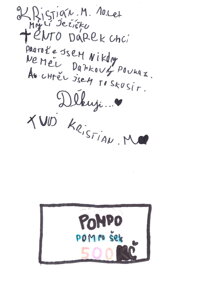 KRISTIÁN. M. 10 let
Milý Ježíšku
TENTO DÁREK CHCI
PROTOŽE JSEM NIKDY
NEMĚL DÁRKOVÝ POUKAZ.
A CHTĚL JSEM TO ZKUSIT.
Děkuji...♥
TVŮJ KRISTIÁN. M♥
POMPO
POMPO ŠEK
500 KČ